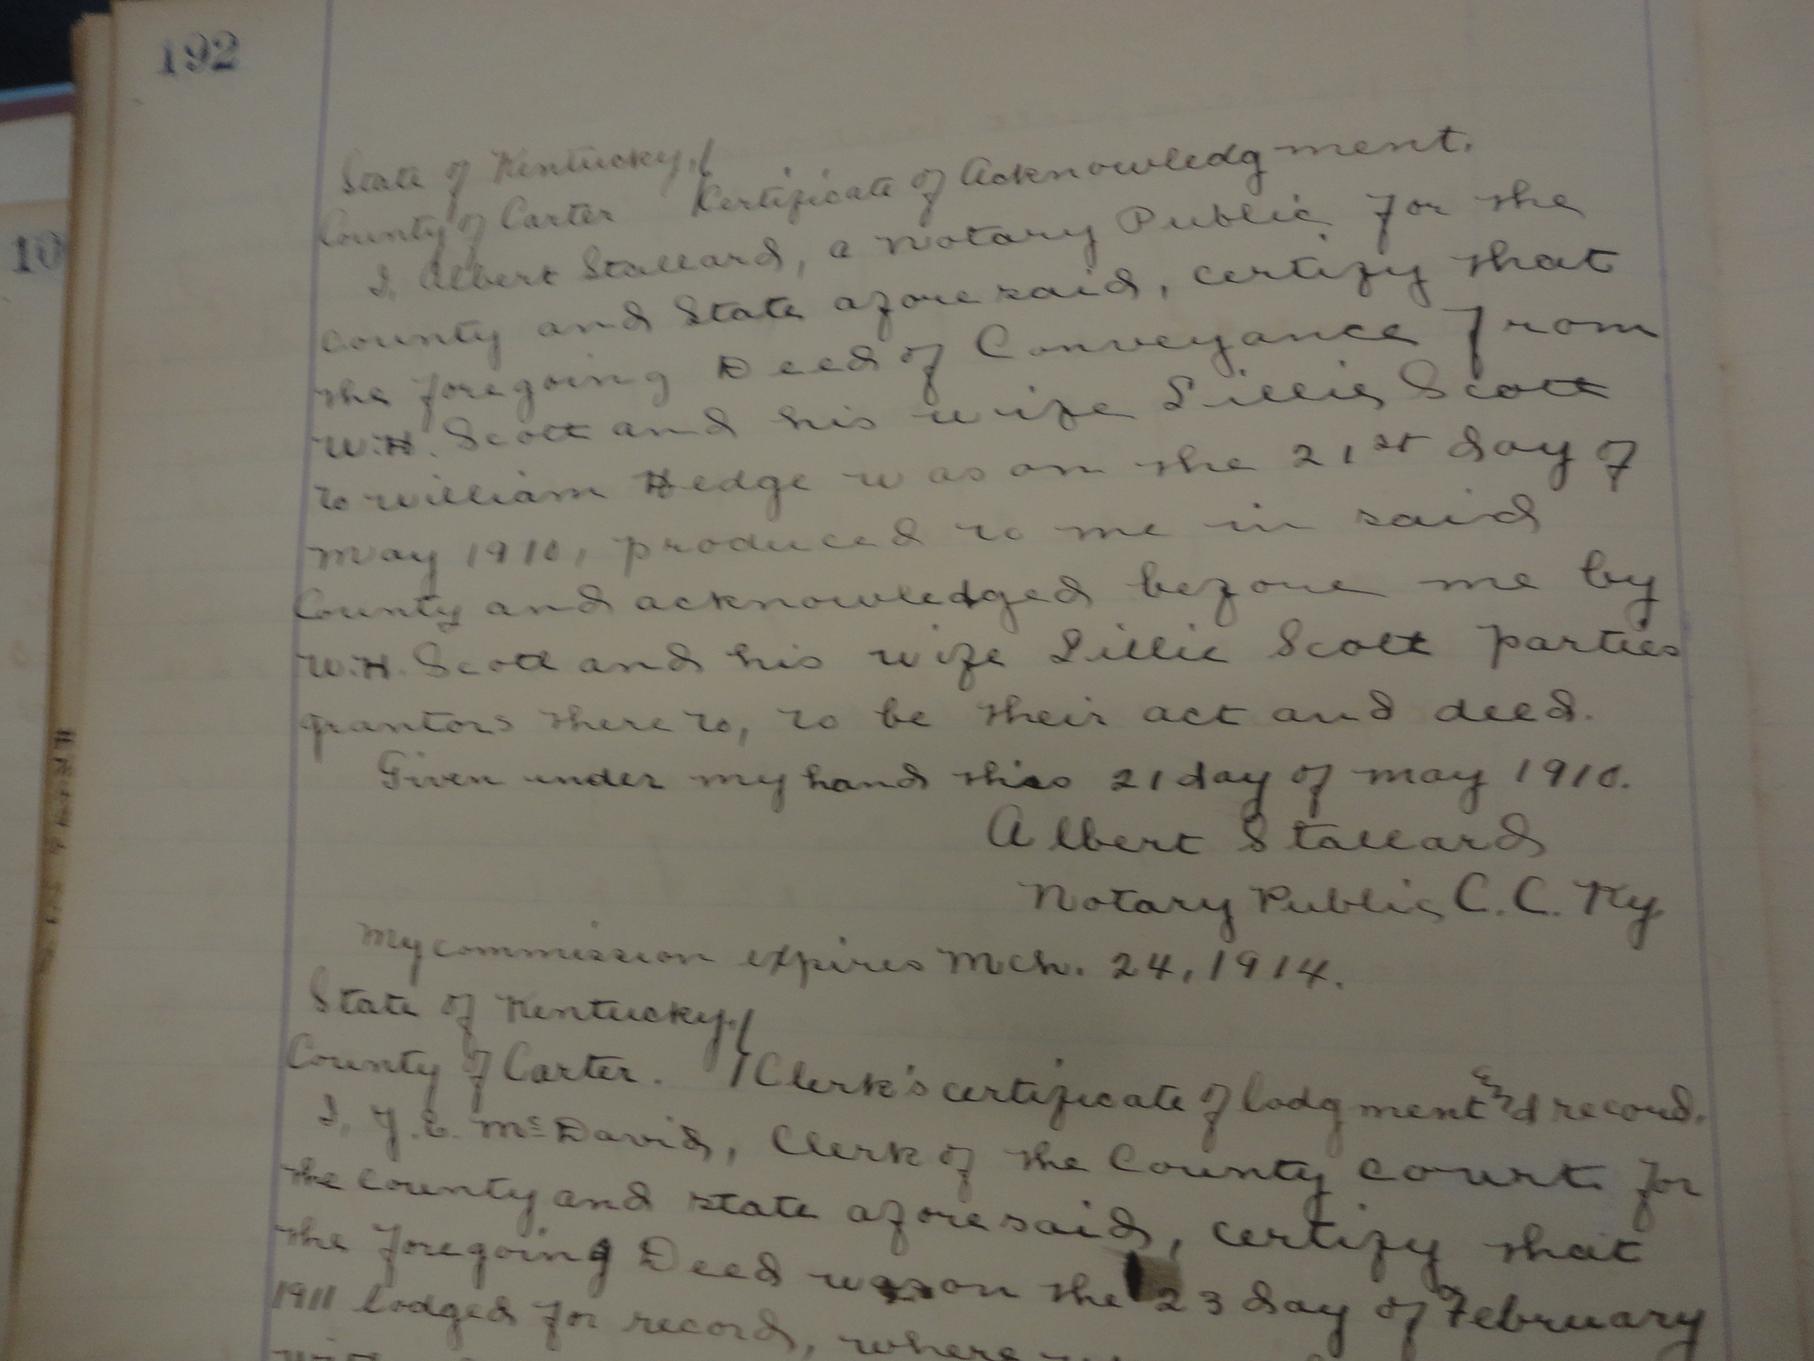 192
State of Kentucky,
County of Carter Certificate of Acknowledgment.
I, Albert Stallard, a Notary Public for the
county and State aforesaid, certify that
the foregoing Deed of Conveyance from
W.H. Scott and his wife Lillie Scott
to William Hedge was on the 21st day of
May 1910, produced to me in said
County and acknowledged before me by
W.H. Scott and his wife Lillie Scott parties
grantors thereto, to be their act and deed.
Given under my hand this 21 day of May 1910.
Albert Stallard
Notary Public, C.C. Ky.
My commission expires Mch. 24, 1914.
State of Kentucky,
County of Carter. Clerk's certificate of lodgment & record.
I, J.E. McDavid, Clerk of the County Court for
the county and state aforesaid, certify that
the foregoing Deed was on the 23 day of February
1911 lodged for record,
10